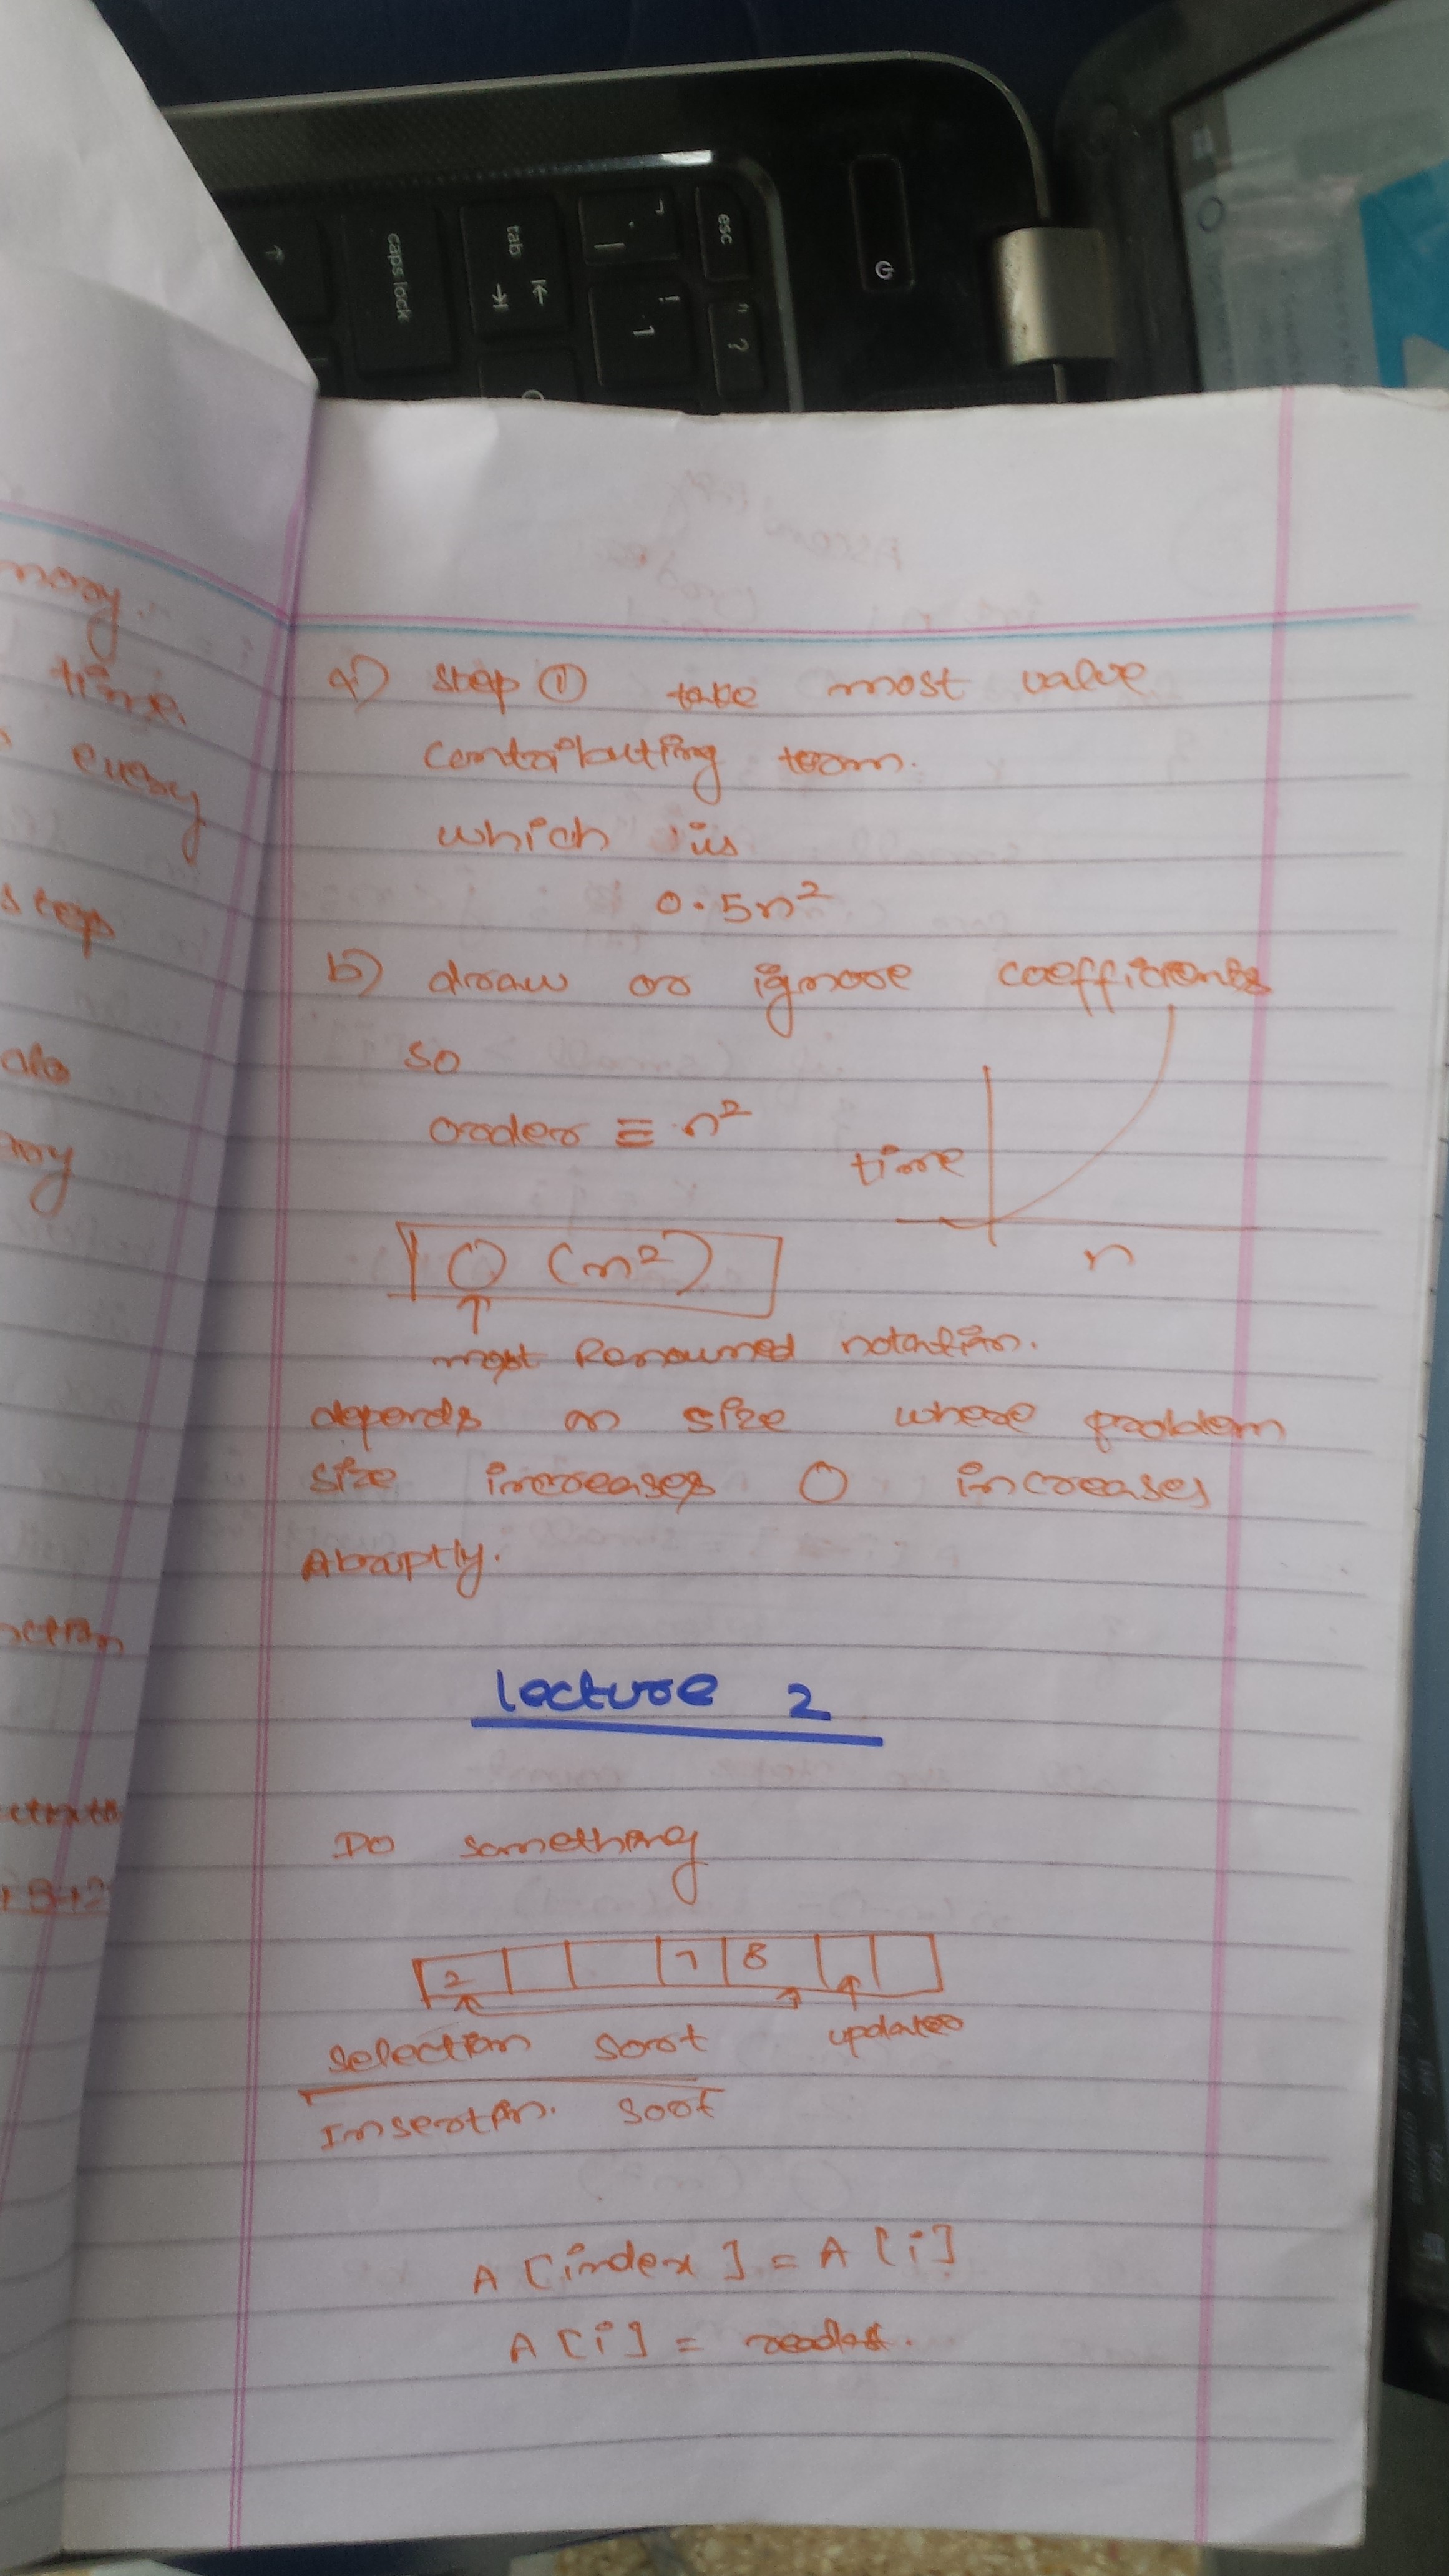 esc
tab
caps lock
! 1
" ?
mory.
time.
every
step
a) step ① take most value
contributing term.
which is
0.5n²
b) draw or ignore coefficients
so
order ≡ n²
time
n
O (n²)
↑
most Renowned notation.
depends on size where problem
size increases O increases
Abruptly.
lecture 2
Do something
2 7 8
selection sort updated
Insertion. sort
A [index] = A [i]
A [i] =